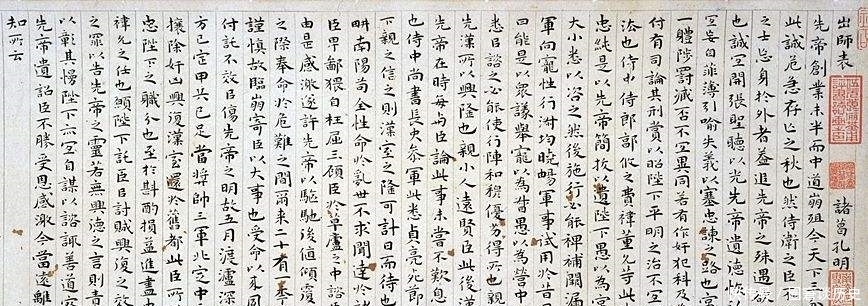 出師表 諸葛孔明
先帝創業未半而中道崩殂今天下
此誠危急存亡之秋也然侍衛之臣
之士忘身於外者蓋追先帝之殊遇
也誠宜開張聖聽以光先帝遺德恢
宜妄自菲薄引喻失義以塞忠諫之路也宮
一體陟罰臧否不宜異同若有作奸犯科及
付有司論其刑賞以昭陛下平明之治不宜
法也侍中侍郎郭攸之費禕董允等此
忠純是以先帝簡拔以遺陛下愚以為宮
大小悉以咨之然後施行必能裨補闕漏
軍向寵性行淑均曉暢軍事試用於昔
曰能是以眾議舉寵以為督愚以為營中
悉臣諮之必能使行陣和穆優劣得所也親
先漢所以興隆也親小人遠賢臣此後漢
先帝在時每與臣論此事未嘗不歎息
也侍中尚書長史參軍此悉貞亮死節
下親之信之則漢室之隆可計日而待也
畊南陽苟全性命於亂世不求聞達於諸
臣卑鄙猥自枉屈三顧臣於草廬之中諮
由是感激遂許先帝以驅馳後值傾覆
之際奉命於危難之間爾來二十有一
謹慎故臨崩寄臣以大事也受命以來夙
付託不效臣傷先帝之明故五月渡瀘深
方已定甲兵已足當獎帥三軍北定中
攘除奸凶興復漢室還於舊都此臣所
忠陛下之職分也至於斟酌損益進盡
禕允之任也願陛下託臣以討賊興復之效
之罪以告先帝之靈若無興德之言則責
以彰其慢陛下亦宜自謀以諮諏善道
先帝遺詔臣不勝受恩感激今當遠離
知所云